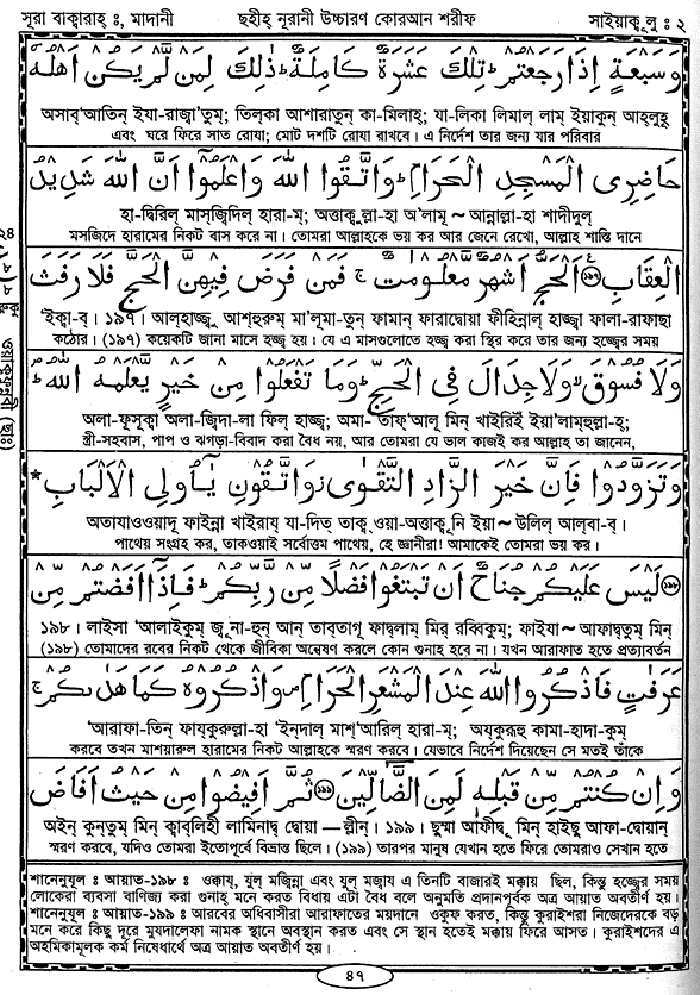 সূরা বাক্বারাহ্ ঃ, মাদানী ছহীহ্ নূরানী উচ্চারণ কোরআন শরীফ সাইয়াকূলু ঃ ২
وَسَبْعَةٍ إِذَا رَجَعْتُمْ ؕ تِلْكَ عَشَرَةٌ كَامِلَةٌ ؕ ذٰلِكَ لِمَنْ لَّمْ يَكُنْ اَهْلُهٗ
অসাব্‘আতিন্ ইযা-রাজ্বা‘তুম্; তিল্কা আশারাতুন্ কা-মিলাহ্; যা-লিকা লিমাল্ লাম্ ইয়াকুন্ আহ্লুহূ
এবং ঘরে ফিরে সাত রোযা; মোট দশটি রোযা রাখবে। এ নির্দেশ তার জন্য যার পরিবার
حَاضِرِى الْمَسْجِدِ الْحَرَامِ ؕ وَاتَّقُوا اللّٰهَ وَاعْلَمُوْٓا اَنَّ اللّٰهَ شَدِيْدُ
হা-দ্বিরিল্ মাস্জ্বিদিল্ হারা-ম্; অত্তাক্বুল্লা-হা অ‘লাম্ ~ আন্নাল্লা-হা শাদীদুল্
মসজিদে হারামের নিকট বাস করে না। তোমরা আল্লাহকে ভয় কর আর জেনে রেখো, আল্লাহ শাস্তি দানে
الْعِقَابِ ﴿۱۹۶﴾ اَلْحَجُّ اَشْهُرٌ مَّعْلُوْمٰتٌ ۚ فَمَنْ فَرَضَ فِيْهِنَّ الْحَجَّ فَلَا رَفَثَ
‘ইক্বা-ব্। ১৯৭। আল্হাজ্জু আশ্হুরুম্ মা‘লূমা-তুন্ ফামান্ ফারাদ্বোয়া ফীহিন্নাল্ হাজ্জ্বা ফালা-রাফাছা
কঠোর। (১৯৭) কয়েকটি জানা মাসে হজ্ব হয়। যে এ মাসগুলোতে হজ্ব করা স্থির করে তার জন্য হজ্বের সময়
وَلَا فُسُوْقَ ۙ وَلَا جِدَالَ فِى الْحَجِّ ؕ وَمَا تَفْعَلُوْا مِنْ خَيْرٍ يَّعْلَمْهُ اللّٰهُ ؕ
অলা-ফুসূক্বা অলা-জ্বিদা-লা ফিল্ হাজ্জ্; অমা- তাফ্‘আলূ মিন্ খাইরিইঁ ইয়া‘লাম্হুল্লা-হ্;
স্ত্রী-সহবাস, পাপ ও ঝগড়া-বিবাদ করা বৈধ নয়, আর তোমরা যে ভাল কাজই কর আল্লাহ তা জানেন,
وَتَزَوَّدُوْا فَاِنَّ خَيْرَ الزَّادِ التَّقْوٰى ز وَاتَّقُوْنِ يٰٓاُولِى الْاَلْبَابِ *
অতাযাওওয়াদূ ফাইন্না খাইরায্ যা-দিত্ তাক্ব্ ওয়া-অত্তাক্বূনি ইয়া ~ উলিল্ আল্বা-ব্।
পাথেয় সংগ্রহ কর, তাকওয়াই সর্বোত্তম পাথেয়, হে জ্ঞানীরা! আমাকেই তোমরা ভয় কর।
لَيْسَ عَلَيْكُمْ جُنَاحٌ اَنْ تَبْتَغُوْا فَضْلًا مِّنْ رَّبِّكُمْ ؕ فَاِذَآ اَفَضْتُمْ مِّنْ
১৯৮। লাইসা ‘আলাইকুম্ জুনা-হুন্ আন্ তাব্তাগূ ফাদ্বলাম্ মির্ রব্বিকুম্; ফাইযা ~ আফাদ্ব্তুম্ মিন্
(১৯৮) তোমাদের রবের নিকট থেকে জীবিকা অন্বেষণ করলে কোন গুনাহ হবে না। যখন আরাফাত হতে প্রত্যাবর্তন
عَرَفٰتٍ فَاذْكُرُوا اللّٰهَ عِنْدَ الْمَشْعَرِ الْحَرَامِ ص وَاذْكُرُوْهُ كَمَا هَدٰىكُمْ ۚ
‘আরাফা-তিন্ ফায্কুরুল্লা-হা ‘ইন্দাল্ মাশ্‘আরিল্ হারা-ম্; অয্কুরূহু কামা-হাদা-কুম্
করবে তখন মাশয়ারুল হারামের নিকট আল্লাহকে স্মরণ করবে। যেভাবে নির্দেশ দিয়েছেন সে মতই তাঁকে
وَاِنْ كُنْتُمْ مِّنْ قَبْلِهٖ لَمِنَ الضَّآلِّيْنَ ﴿۱۹۸﴾ ثُمَّ اَفِيْضُوْا مِنْ حَيْثُ اَفَاضَ
অইন্ কুন্তুম্ মিন্ ক্বাব্লিহী লামিনাদ্ব দ্বোয়া — ল্লীন্। ১৯৯। ছুম্মা আফীদ্বূ মিন্ হাইছু আফা-দ্বোয়ান্
স্মরণ করবে, যদিও তোমরা ইতোপূর্বে বিভ্রান্ত ছিলে। (১৯৯) তারপর মানুষ যেখান হতে ফিরে তোমরাও সেখান হতে
শানেনুযূল ঃ আয়াত-১৯৮ ঃ ওক্কায, যুল্ মজিন্না এবং যুল্ মজায এ তিনটি বাজারই মক্কায় ছিল, কিন্তু হজ্বের সময়
লোকেরা ব্যবসা বাণিজ্য করা গুনাহ্ মনে করত বিধায় এটা বৈধ বলে অনুমতি প্রদানপূর্বক অত্র আয়াত অবতীর্ণ হয়।
শানেনুযূল ঃ আয়াত-১৯৯ ঃ আরবের অধিবাসীরা আরাফাতের ময়দানে ওকূফ করত, কিন্তু কুরাইশরা নিজেদেরকে বড়
মনে করে কিছু দূরে মুযদালেফা নামক স্থানে অবস্থান করত এবং সে স্থান হতেই মক্কায় ফিরে আসত। কুরাইশদের এ
অহমিকামূলক কর্ম নিষেধার্থে অত্র আয়াত অবতীর্ণ হয়।
৪৭